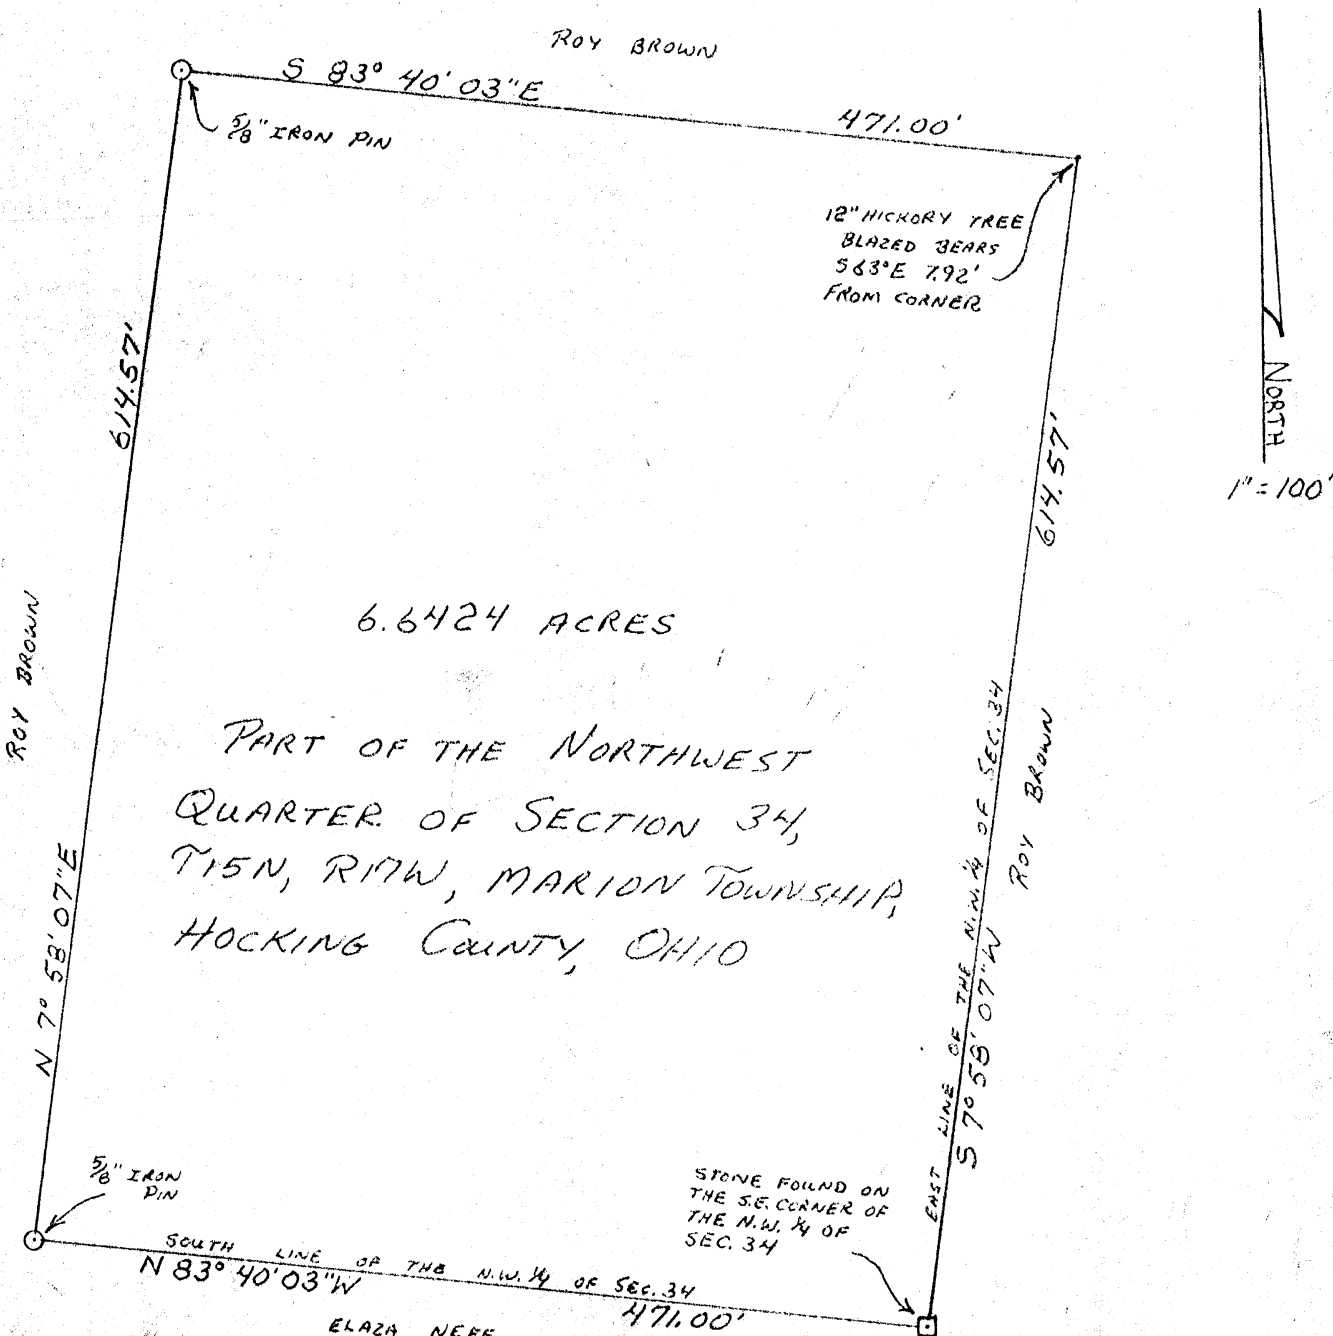 ROY BROWN
S 83° 40' 03"E
471.00'
5/8" IRON PIN
12" HICKORY TREE
BLAZED BEARS
S63°E 7.92'
FROM CORNER
NORTH
1" = 100'
614.57'
614.57'
ROY BROWN
6.6424 ACRES
PART OF THE NORTHWEST
QUARTER OF SECTION 34,
T15N, R17W, MARION TOWNSHIP,
HOCKING COUNTY, OHIO
N 7° 58' 07"E
EAST LINE OF THE N.W. 1/4 OF SEC. 34
S 7° 58' 07"W
ROY BROWN
5/8" IRON
PIN
STONE FOUND ON
THE S.E. CORNER OF
THE N.W. 1/4 OF
SEC. 34
SOUTH LINE OF THE N.W. 1/4 OF SEC. 34
N 83° 40' 03"W
471.00'
ELAZA NEFF